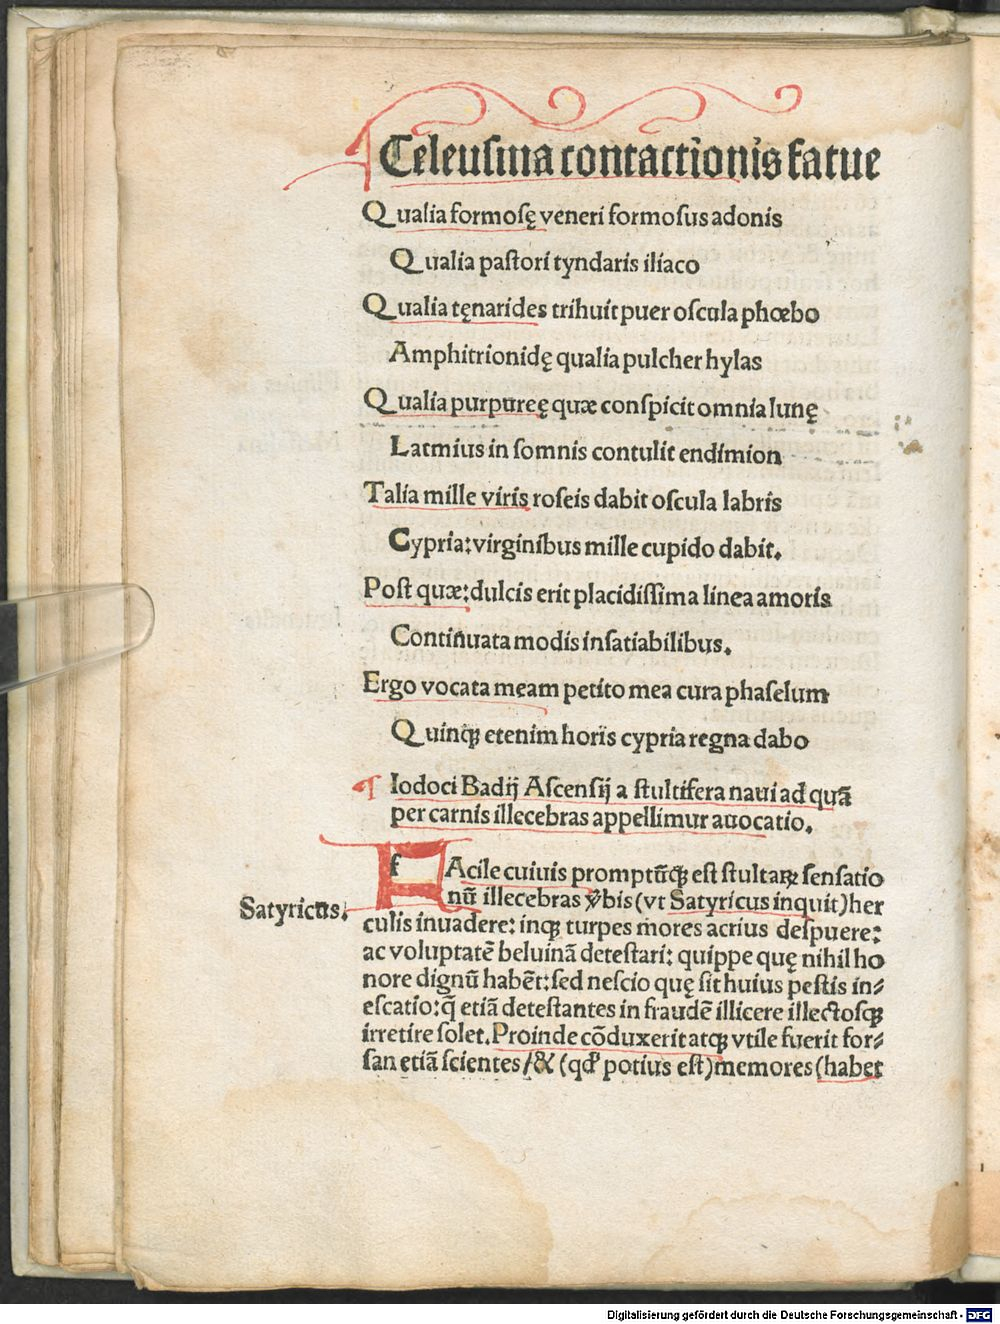 Celeusma contactionis fatue
Qualia formosę veneri formosus adonis
Qualia pastori tyndaris iliaco
Qualia tęnarides trihuit puer oscula phœbo
Amphitrionidę qualia pulcher hylas
Qualia purpureę quæ conspicit omnia lunę
Latmius in somnis contulit endimion
Talia mille viris roseis dabit oscula labris
Cypria: virginibus mille cupido dabit.
Post quæ: dulcis erit placidissima linea amoris
Continuata modis insatiabilibus.
Ergo vocata meam petito mea cura phaselum
Quinqꝫ etenim horis cypria regna dabo
¶ Iodoci Badij Ascensij a stultifera naui ad quã
per carnis illecebras appellimur auocatio.
fAcile cuiuis promptũqꝫ est stultaꝝ sensatio
nũ illecebras v̾bis (vt Satyricus inquit) her
Satyricus.
culis inuadere: inqꝫ turpes mores acrius despuere:
ac voluptatẽ beluinã detestari: quippe quę nihil ho
nore dignũ habẽt: sed nescio quę sit huius pestis in⸗
escatio: q̃ etiã detestantes in fraudẽ illicere illectosqꝫ
irretire solet. Proinde cõduxerit atqꝫ vtile fuerit for⸗
san etiã scientes / & (qd̕ potius est) memores (habet
Digitalisierung gefördert durch die Deutsche Forschungsgemeinschaft - DFG